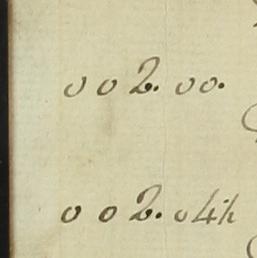 0 0 2. 00.
0 0 2. 04½